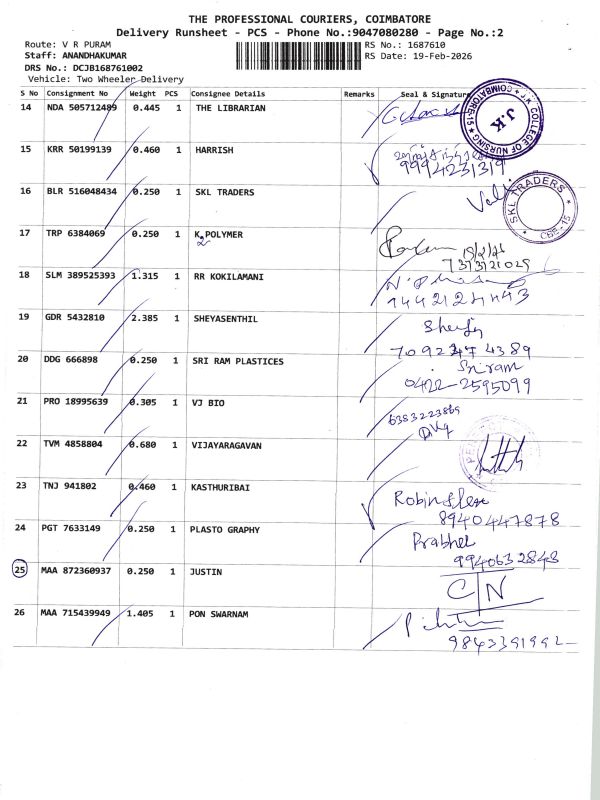 THE PROFESSIONAL COURIERS, COIMBATORE
Delivery Runsheet - PCS - Phone No.:9047080280 - Page No.:2
Route: V R PURAM RS No.: 1687610
Staff: ANANDHAKUMAR RS Date: 19-Feb-2026
DRS No.: DCJB168761002
Vehicle: Two Wheeler Delivery
S No Consignment No Weight PCS Consignee Details Remarks Seal & Signature
14 NDA 505712489 0.445 1 THE LIBRARIAN
J.K. COLLEGE OF NURSING COIMBATORE-15
J.K
15 KRR 50199139 0.460 1 HARRISH
9994231319
16 BLR 516048434 0.250 1 SKL TRADERS
SKL TRADERS CBE-15
17 TRP 6384069 0.250 1 K POLYMER
19/2/26
7373721029
18 SLM 389525393 1.315 1 RR KOKILAMANI
19 GDR 5432810 2.385 1 SHEYASENTHIL
20 DDG 666898 0.250 1 SRI RAM PLASTICES
Sriram
0422-2595099
21 PRO 18995639 0.305 1 VJ BIO
6383223869
22 TVM 4858804 0.680 1 VIJAYARAGAVAN
23 TNJ 941802 0.460 1 KASTHURIBAI
8940447878
24 PGT 7633149 0.250 1 PLASTO GRAPHY
Prabhu
9940632848
25 MAA 872360937 0.250 1 JUSTIN
C/N
26 MAA 715439949 1.405 1 PON SWARNAM
9843391992